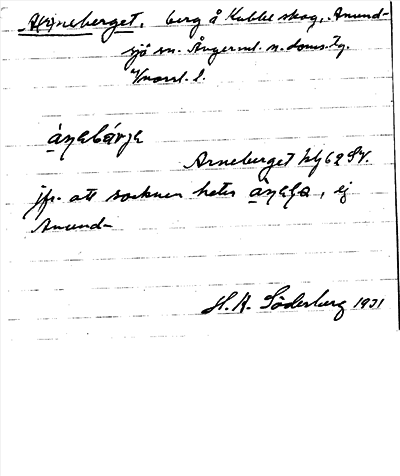 A(r)neberget, berg å Kubbe skog, Anund-
sjö sn. Ångerml. n. doms.
Vnorrl. l.
ànabárja
Arneberget blg 62 SV.
jfr. att socknen heter , ej
Anund-
H. K. Söderberg 1931